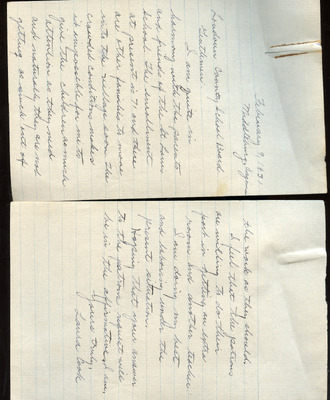 Middleburg, Virginia
February 9, 1931
Loudoun County School Board
Gentlemen
I am quite in
harmony with the parents
and friends of the St Louis
School. The enrollment
at present is 71 and there
are other families to move
into the village soon. The
crowded conditions makes
it impossible for me to
give the children as much
attention as they need
and naturally they are not
getting as much out of
the work as they should.
I feel that the patrons
are willing to do their
part in getting an extra
room and another teacher.
I am doing my best
and laboring under the
present situation.
Hoping that your answer
to the patrons request will
be in the affirmative, I am,
Yours truly,
Laura Cook